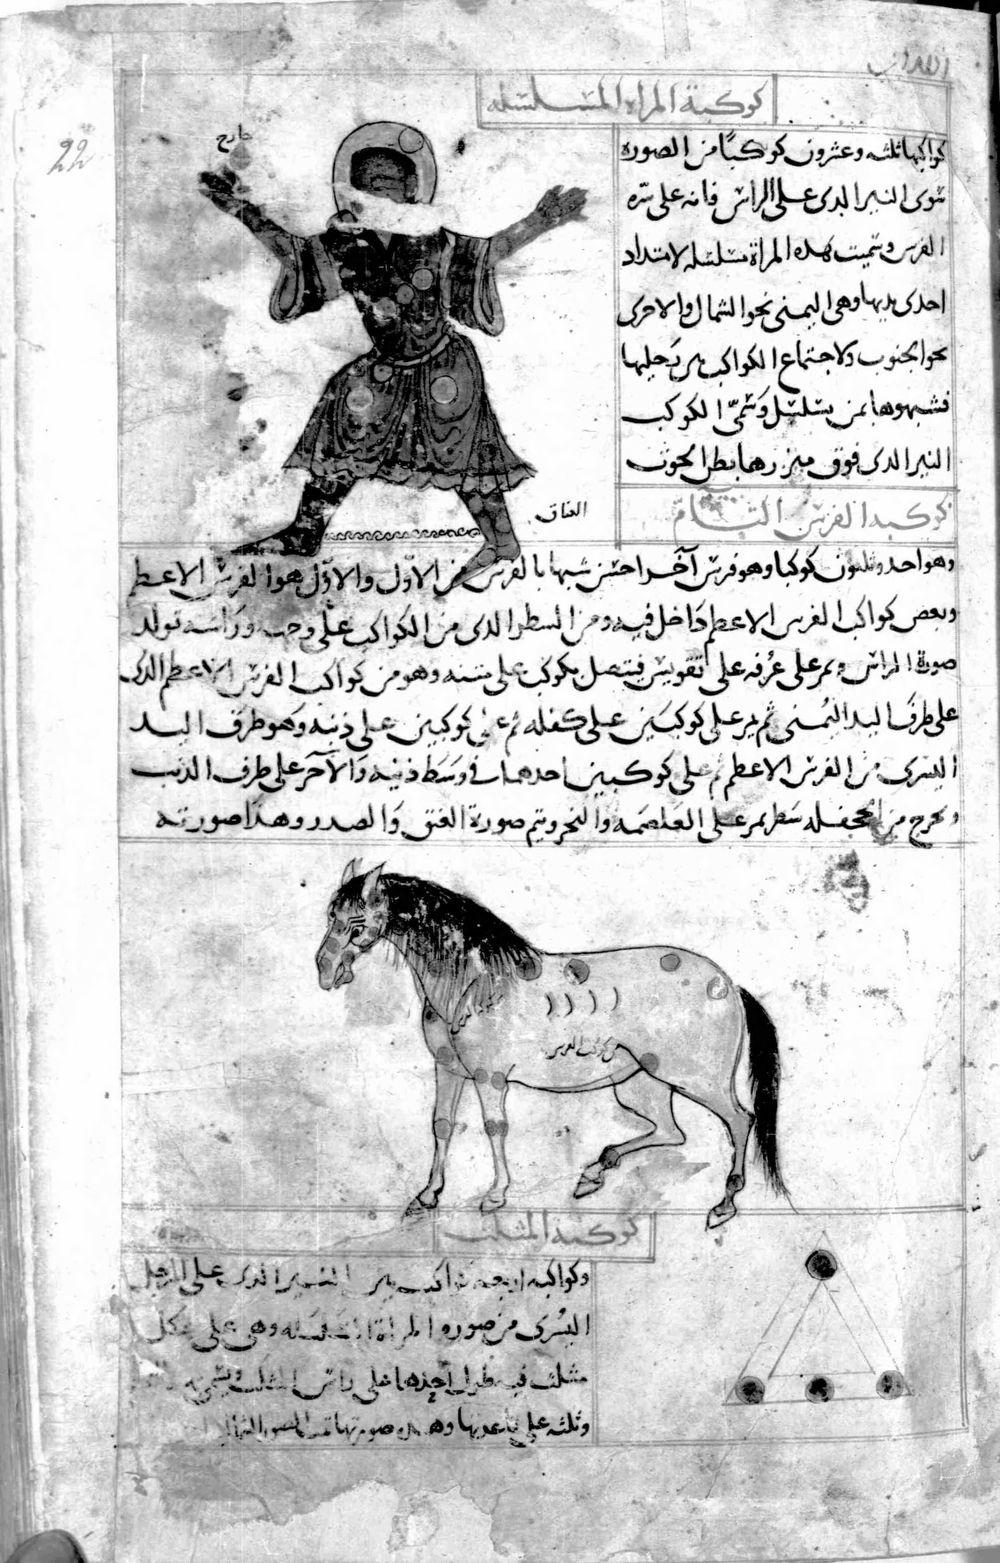 كوكبة المراه المتسلسله
كواكبها ثلثه وعشرون كوكبًا من الصوره
سوى النير الدى على الراس فانه على سره
الفرس وسميت هده المراة مسلسله لامتداد
احدى يديها وهى اليمنى نحو الشمال والاخرى
نحو الجنوب ولاجتماع الكواكب بين رجليها
فشبهوها بمن يتسلسل وسمىّ الكوكب
النير الدى فوق ميزرها بطن الحوت
خارج
العناق
22
كوكبه الفرس التامّ
وهو احد وثلثون كوكبا وهو فرس آخر احسن شبها بالفرس من الاوّل والاوّل هو الفرس الاعظم
وبعض كواكب الفرس الاعظم دَاخل فيه ومن السطر الدى من الكواكب على وجهه ورَاسه تولد
صورة الراس ويمر على عُرفه على تقويس فيتصل بكوكب على متنه وهو من كواكب الفرس الاعظم الدى
على طرَف اليد اليُمنى ثم يمر على كوكبَين على كفله ثم على كوكبين على ذنبه وَهو طرف اليد
اليسرى من الفرس الاعظم ثم على كوكبين احدهما فى وسَط ذنبه وَالآخر على طرف الدنب
ويخرج من جحفله سَطر يمر على الغلصَمه وَالنحر ويتم صورة العنق وَالصدر وهذا صورته
من كواكب الفرس
كوكبة المثلث
وكواكبه اربعه كواكب بين النير الدى على الرجل
اليُسرى من صوره المراة المسلسله وهى على شكل
مثلث فيه طول احدها على راس المثلث
وثلثه على قاعدتها وهده صورتها